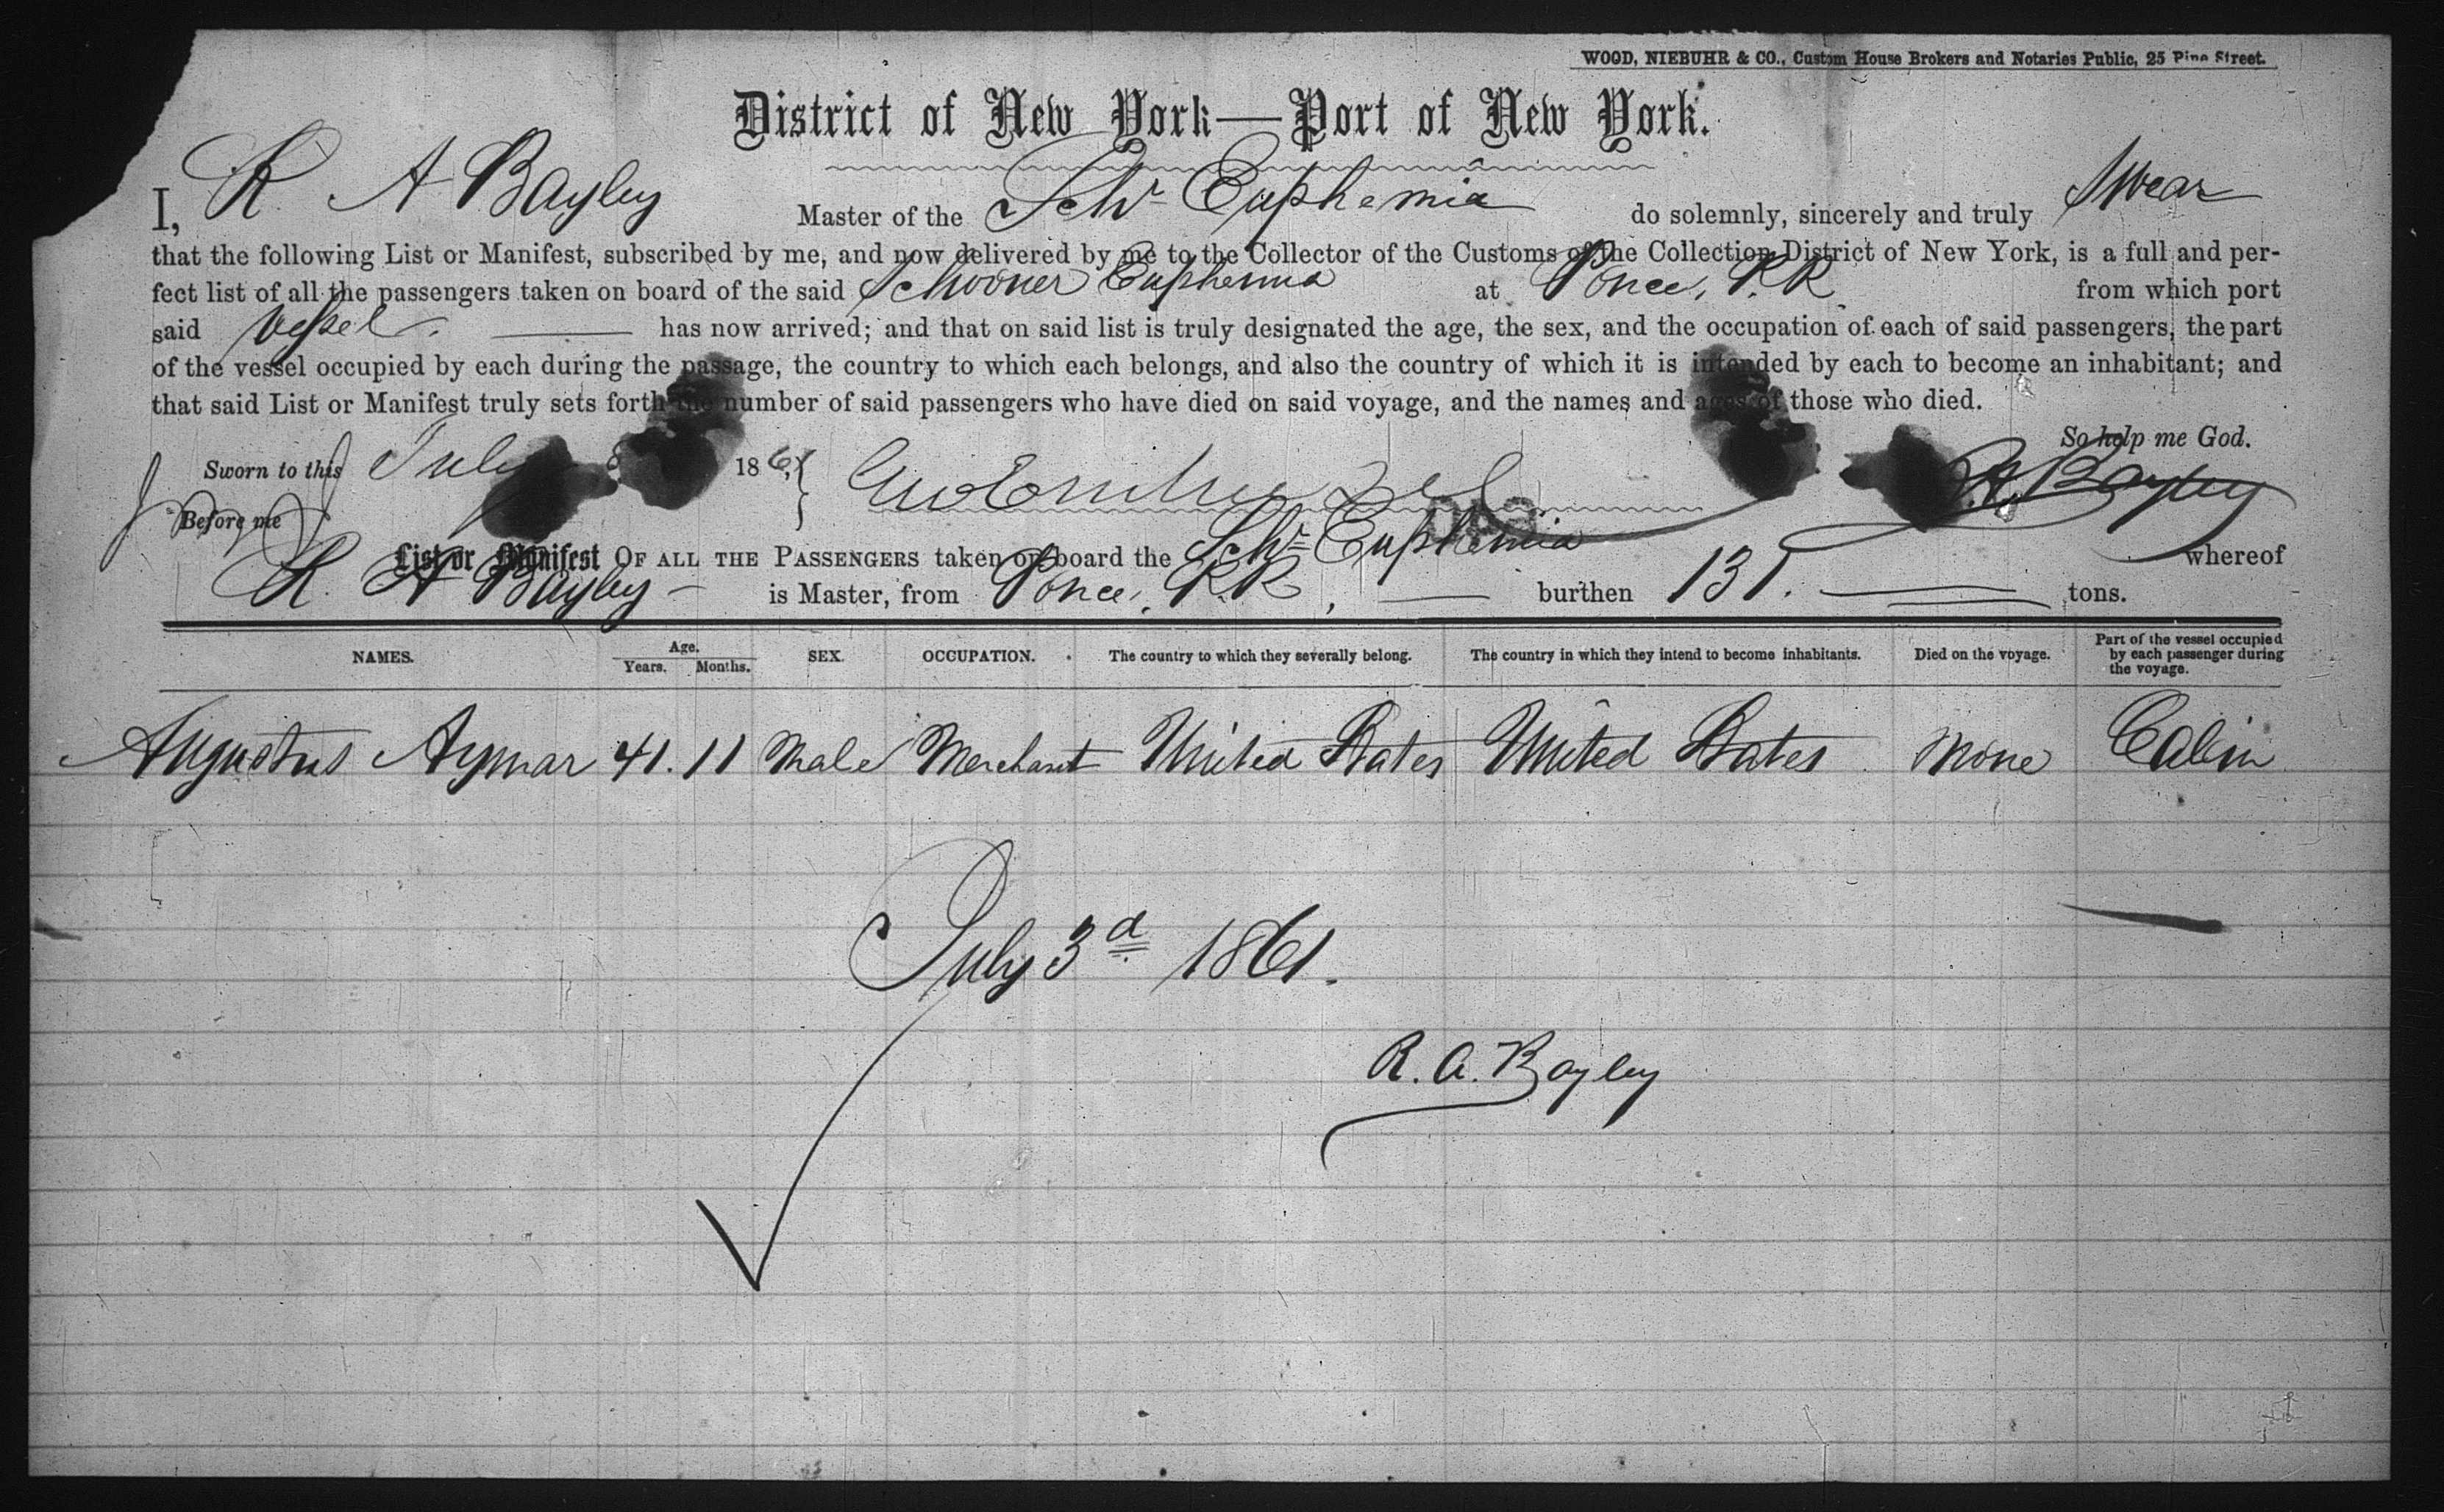 WOOD, NIEBUHR & CO., Custom House Brokers and Notaries Public, 25 Pine Street.
District of New York—Port of New York.
I, R A Bayley Master of the Schr Euphemia do solemnly, sincerely and truly swear
that the following List or Manifest, subscribed by me, and now delivered by me to the Collector of the Customs of the Collection District of New York, is a full and per-
fect list of all the passengers taken on board of the said Schooner Euphemia at Ponce, P.R from which port
said vessel. has now arrived; and that on said list is truly designated the age, the sex, and the occupation of each of said passengers, the part
of the vessel occupied by each during the passage, the country to which each belongs, and also the country of which it is intended by each to become an inhabitant; and
that said List or Manifest truly sets forth the number of said passengers who have died on said voyage, and the names and ages of those who died.
So help me God.
Sworn to this July 1861 R. A. Bayley
Before me
List or Manifest OF ALL THE PASSENGERS taken on board the Schr Euphemia whereof
R. A Bayley is Master, from Ponce, P.R, burthen 131. tons.
NAMES. Age. Years. Months. SEX. OCCUPATION. The country to which they severally belong. The country in which they intend to become inhabitants. Died on the voyage. Part of the vessel occupied by each passenger during the voyage.
Augustus Aymar 41. 11 Male Merchant United States United States None Cabin
July 3d 1861.
R. A. Bayley